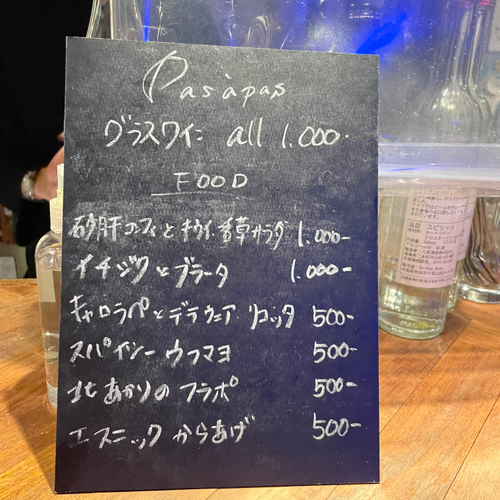 Pas à pas
グラスワイン all 1.000-
FOOD
砂肝コンフィとキウイ、香草サラダ 1.000-
イチジクとブラータ 1.000-
キャロラペとデラウェア リコッタ 500-
スパイシーウフマヨ 500-
北あかりのフラポ 500-
エスニックからあげ 500-
品目 スピリッツ